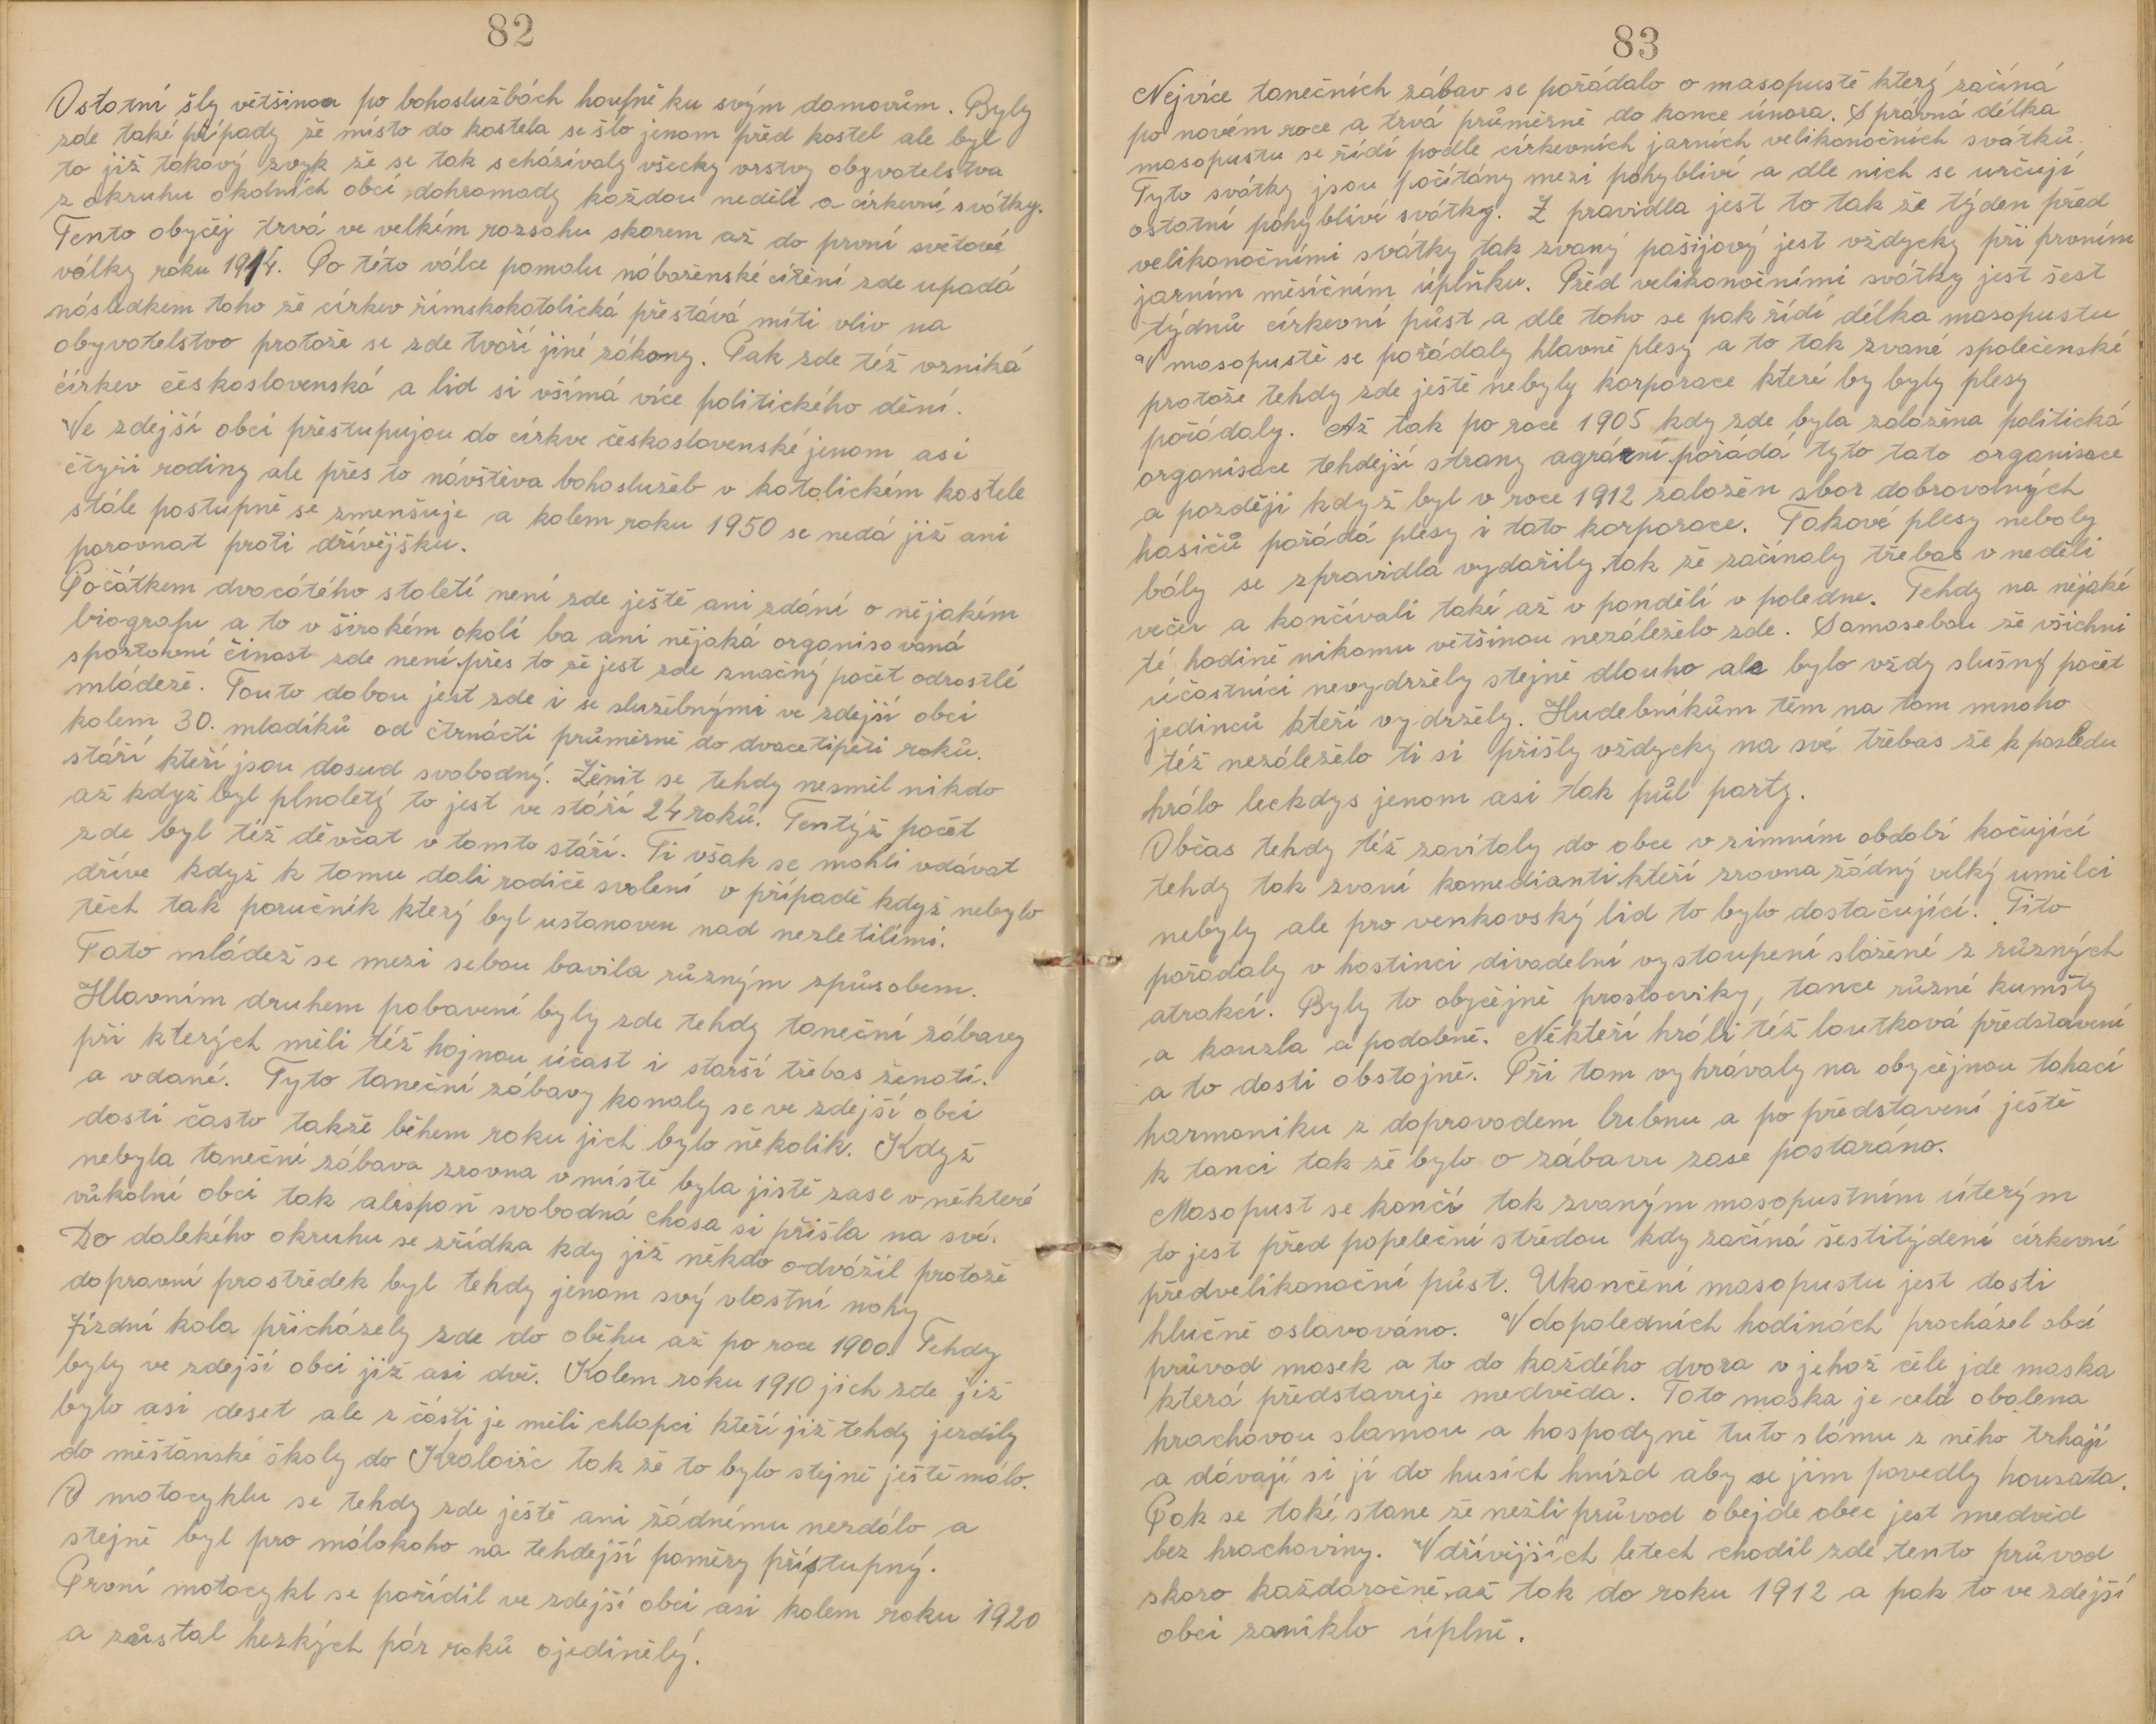 82
Ostatní šly většinou po bohoslužbách houfně ku svým domovům. Byly
zde také případy že místo do kostela se šlo jenom před kostel ale byl
to již takový zvyk že se tak scházívaly všecky vrstvy obyvatelstva
z okruhu okolních obcí dohromady každou neděli a církevní svátky.
Tento obyčej trvá ve velkém rozsahu skorem až do první světové
války roku 1914. Po této válce pomalu náboženské cítění zde upadá
následkem toho že církev římskokatolická přestává míti vliv na
obyvatelstvo protože se zde tvoří jiné zákony. Pak zde též vzniká
církev československá a lid si všímá více politického dění.
Ve zdejší obci přestupujou do církve československé jenom asi
čtyři rodiny ale přes to návštěva bohoslužeb v katolickém kostele
stále postupně se zmenšuje a kolem roku 1950 se nedá již ani
porovnat proti dřívějšku.
Počátkem dvacátého století není zde ještě ani zdání o nějakém
biografu a to v širokém okolí ba ani nějaká organisovaná
sportovní činost zde není přes to že jest zde značný počet odrostlé
mládeže. Touto dobou jest zde i se služebnými ve zdejší obci
kolem 30. mladíků od čtrnácti průměrně do dvacetipěti roků.
stáří kteří jsou dosud svobodný. Ženit se tehdy nesměl nikdo
až když byl plnoletý to jest ve stáří 24 roků. Tentýž počet
zde byl též děvčat v tomto stáří. Ti však se mohli vdávat
dříve když k tomu dali rodiče svolení v případě když nebylo
těch tak poručník který byl ustanoven nad nezletilími.
Tato mládež se mezi sebou bavila různým způsobem.
Hlavním druhem pobavení byly zde tehdy taneční zábavy
při kterých měli též hojnou účast i starší třebas ženatí.
a vdané. Tyto taneční zábavy konaly se ve zdejší obci
dosti často takže během roku jich bylo několik. Když
nebyla taneční zábava zrovna v místě byla jistě zase v některé
vůkolní obci tak alespoň svobodná chasa si přišla na své.
Do dalekého okruhu se zřídka kdy již někdo odvážil protože
dopravní prostředek byl tehdy jenom svý vlastní nohy
Jízdní kola přicházely zde do oběhu až po roce 1900. Tehdy
byly ve zdejší obci již asi dvě. Kolem roku 1910 jich zde již
bylo asi deset ale z části je měli chlapci kteří již tehdy jezdily
do měšťanské školy do Kralovic tak že to bylo stejně ještě málo.
O motocyklu se tehdy zde ještě ani žádnému nezdálo a
stejně byl pro málokoho na tehdejší poměry přístupný.
První motocykl se pořídil ve zdejší obci asi kolem roku 1920
a zůstal hezkých pár roků ojedinělý.
83
Nejvíce tanečních zábav se pořádalo o masopustě který začíná
po novém roce a trvá průměrně do konce února. Správná délka
masopustu se řídí podle církevních jarních velikonočních svátků.
Tyto svátky jsou počítány mezi pohyblivé a dle nich se určují
ostatní pohyblivé svátky. Z pravidla jest to tak že týden před
velikonočními svátky tak zvaný pašijový jest vždycky při prvním
jarním měsíčním úplňku. Před velikonočními svátky jest šest
týdnů církevní půst a dle toho se pak řídí délka masopustu
V masopustě se pořádaly hlavně plesy a to tak zvané společenské
protože tehdy zde ještě nebyly korporace které by byly plesy
pořádaly. Až tak po roce 1905 kdy zde byla založena politická
organisace tehdejší strany agrární pořádá tyto tato organisace
a později když byl v roce 1912 založen sbor dobrovolných
hasičů pořádá plesy i tato korporace. Takové plesy neboly
bály se zpravidla vydařily tak že začínaly třebas v neděli
večer a končívali také až v pondělí v poledne. Tehdy na nějaké
té hodině nikomu většinou nezáleželo zde. Samosebou že všichni
účastníci nevydržely stejně dlouho ale bylo vždy slušný počet
jedinců kteří vydržely. Hudebníkům těm na tom mnoho
též nezáleželo ti si přišly vždycky na své třebas že k posledu
hrálo leckdys jenom asi tak půl party.
Občas tehdy též zavítaly do obce v zimním období kočující
tehdy tak zvaní komedianti kteří zrovna žádný velký umělci
nebyly ale pro venkovský lid to bylo dostačující. Tito
pořádaly v hostinci divadelní vystoupení složené z různých
atrakcí. Byly to obyčejně prostocviky, tance různé kumšty
a kouzla a podobně. Někteří hráli též loutková představení
a to dosti obstojně. Při tom vyhrávaly na obyčejnou tahací
harmoniku z dopravodem bubnu a po představení ještě
k tanci tak že bylo o zábavu zase postaráno.
Masopust se končí tak zvaným masopustním úterým
to jest před popeleční středou kdy začíná šestitýdení církevní
předvelikonoční půst. Ukončení masopustu jest dosti
hlučně oslavováno. V dopoledních hodinách procházel obcí
průvod masek a to do každého dvora v jehož čele jde maska
která představuje medvěda. Tato maska je celá obalena
hrachovou slamou a hospodyně tuto slámu z něho trhají
a dávají si jí do husích hnízd aby se jim povedly housata.
Pak se také stane že nežli průvod obejde obec jest medvěd
bez hrachoviny. V dřívějších letech chodil zde tento průvod
skoro každoročně až tak do roku 1912 a pak to ve zdejší
obci zaniklo úplně.